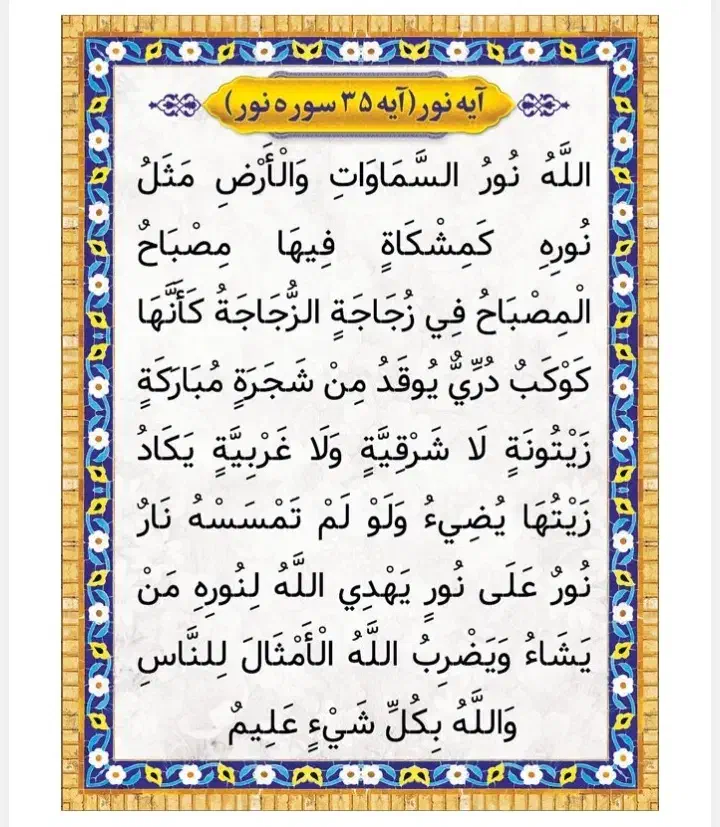 آیه نور(آیه ۳۵ سوره نور)
اللَّهُ نُورُ السَّمَاوَاتِ وَالْأَرْضِ مَثَلُ
نُورِهِ كَمِشْكَاةٍ فِيهَا مِصْبَاحٌ
الْمِصْبَاحُ فِي زُجَاجَةٍ الزُّجَاجَةُ كَأَنَّهَا
كَوْكَبٌ دُرِّيٌّ يُوقَدُ مِنْ شَجَرَةٍ مُبَارَكَةٍ
زَيْتُونَةٍ لَا شَرْقِيَّةٍ وَلَا غَرْبِيَّةٍ يَكَادُ
زَيْتُهَا يُضِيءُ وَلَوْ لَمْ تَمْسَسْهُ نَارٌ
نُورٌ عَلَى نُورٍ يَهْدِي اللَّهُ لِنُورِهِ مَنْ
يَشَاءُ وَيَضْرِبُ اللَّهُ الْأَمْثَالَ لِلنَّاسِ
وَاللَّهُ بِكُلِّ شَيْءٍ عَلِيمٌ